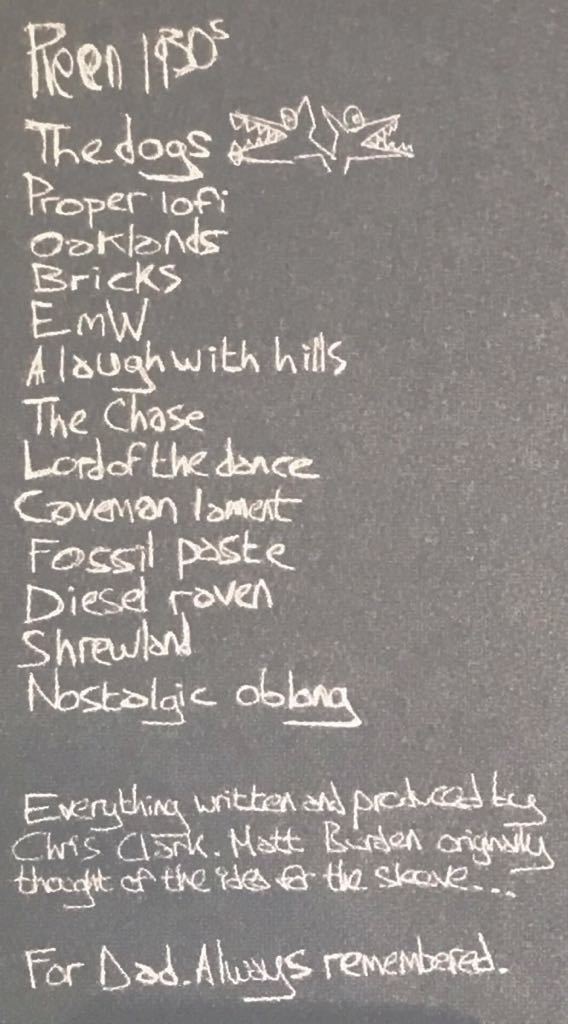 Pleen 1930s
The dogs
Proper lofi
Oaklands
Bricks
EmW
A laugh with hills
The Chase
Lord of the dance
Caveman lament
Fossil paste
Diesel raven
Shrewland
Nostalgic oblong
Everything written and produced by
Chris Clark. Matt Burden originally
thought of the idea for the sleeve...
For Dad. Always remembered.